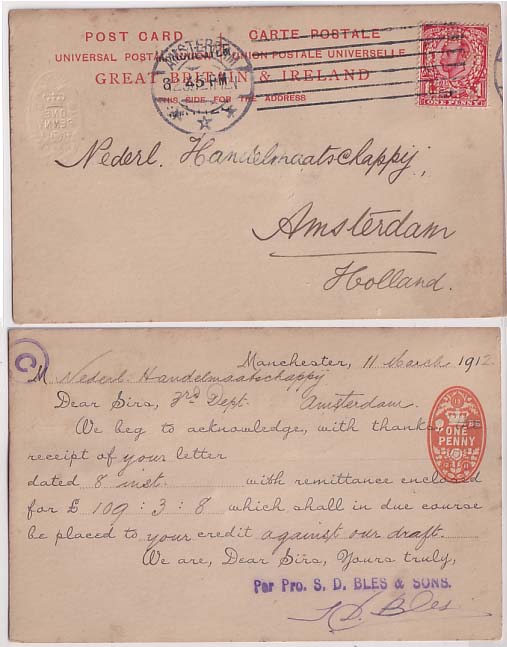 POST CARD CARTE POSTALE
UNIVERSAL POSTAL UNION UNION POSTALE UNIVERSELLE
GREAT BRITAIN & IRELAND
THIS SIDE FOR THE ADDRESS
AMSTERDAM
ONE PENNY
Nederl. Handelmaatschappij,
Amsterdam
Holland.
C
Manchester, 11 March 1912.
M Nederl. Handelmaatschappij
Dear Sirs, 3rd Dept. Amsterdam.
We beg to acknowledge, with thanks,
receipt of your letter
dated 8 inst. with remittance enclosed
for £ 109 : 3 : 8 which shall in due course
be placed to your credit against our draft.
We are, Dear Sirs, Yours truly,
Per Pro. S. D. BLES & SONS.
S D. Bles
ONE
PENNY